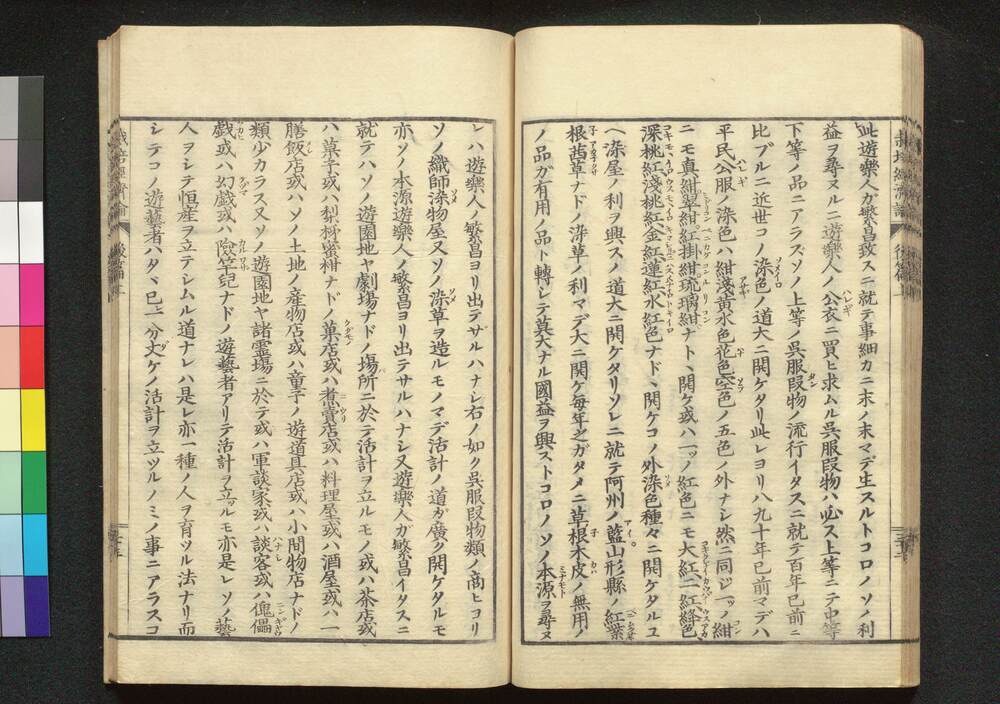 此遊樂人ガ繁昌致スニ就テ事細カニ末ノ末マデ生スルトコロノソノ利
益ヲ尋ヌルニ遊樂人ノ公衣ニ買ヒ求ムル呉服段物ハ必ス上等ニテ中等
下等ノ品ニアラズソノ上等ノ呉服段物ノ流行イタスニ就テ百年已前ニ
比ブルニ近世コノ染色ノ道大ニ開ケタリ此レヨリ八九十年已前マデハ
平民公服ノ染色ハ紺淺黄水色花色空色ノ五色ノ外ナシ然ニ同ジ一ッノ紺
ニモ真紺翠紺紅掛紺琉璃紺ナト、開ケ或ハ一ッノ紅色ニモ大紅二紅絳色
深桃紅淺桃紅金紅蓮紅水紅色ナド、開ケコノ外染色種々ニ開ケタルユ
ヘ染屋ノ利ヲ興スノ道大ニ開ケタリソレニ就テ阿州ノ藍山形縣ノ紅葉
根茜草ナドノ染草ノ利マデ大ニ開ケ毎年之ガタメニ草根木皮ノ無用ノ
ノ品ガ有用ノ品ト轉シテ莫大ナル國益ヲ興ストコロノソノ本源ヲ尋ヌ
レハ遊樂人ノ繁昌ヨリ出テザルハナシ右ノ如ク呉服段物類ノ商ヒコリ
ソノ織師染物屋又ソノ染草ヲ造ルモノマデ活計ノ道ガ廣ク開ケタルモ
亦ソノ本源遊樂人ノ繁昌ヨリ出テサルハナシ又遊樂人ガ繁昌イタスニ
就テハソノ遊園地ヤ劇場ナドノ場所ニ於テ活計ヲ立ルモノ或ハ茶店或
ハ菓子或ハ梨柿蜜柑ナドノ菓店或ハ煮賣店或ハ料理屋或ハ酒屋或ハ一
膳飯店或ハソノ土地ノ産物店或ハ童子ノ遊道具店或ハ小間物店ナドノ
類少カラス又ソノ遊園地ヤ諸靈場ニ於テ或ハ軍談家或ハ談客或ハ傀儡
戯或ハ幻戯或ハ險竿兒ナドノ遊藝者アリテ活計ヲ立ッルモ亦是レソノ藝
人ヲシテ恒産ヲ立テシムル道ナレハ是レ亦一種ノ人ヲ育ツル法ナリ而
シテコノ遊藝者ハタヾ已一分丈ケノ活計ヲ立ツルノミノ事ニアラスコ